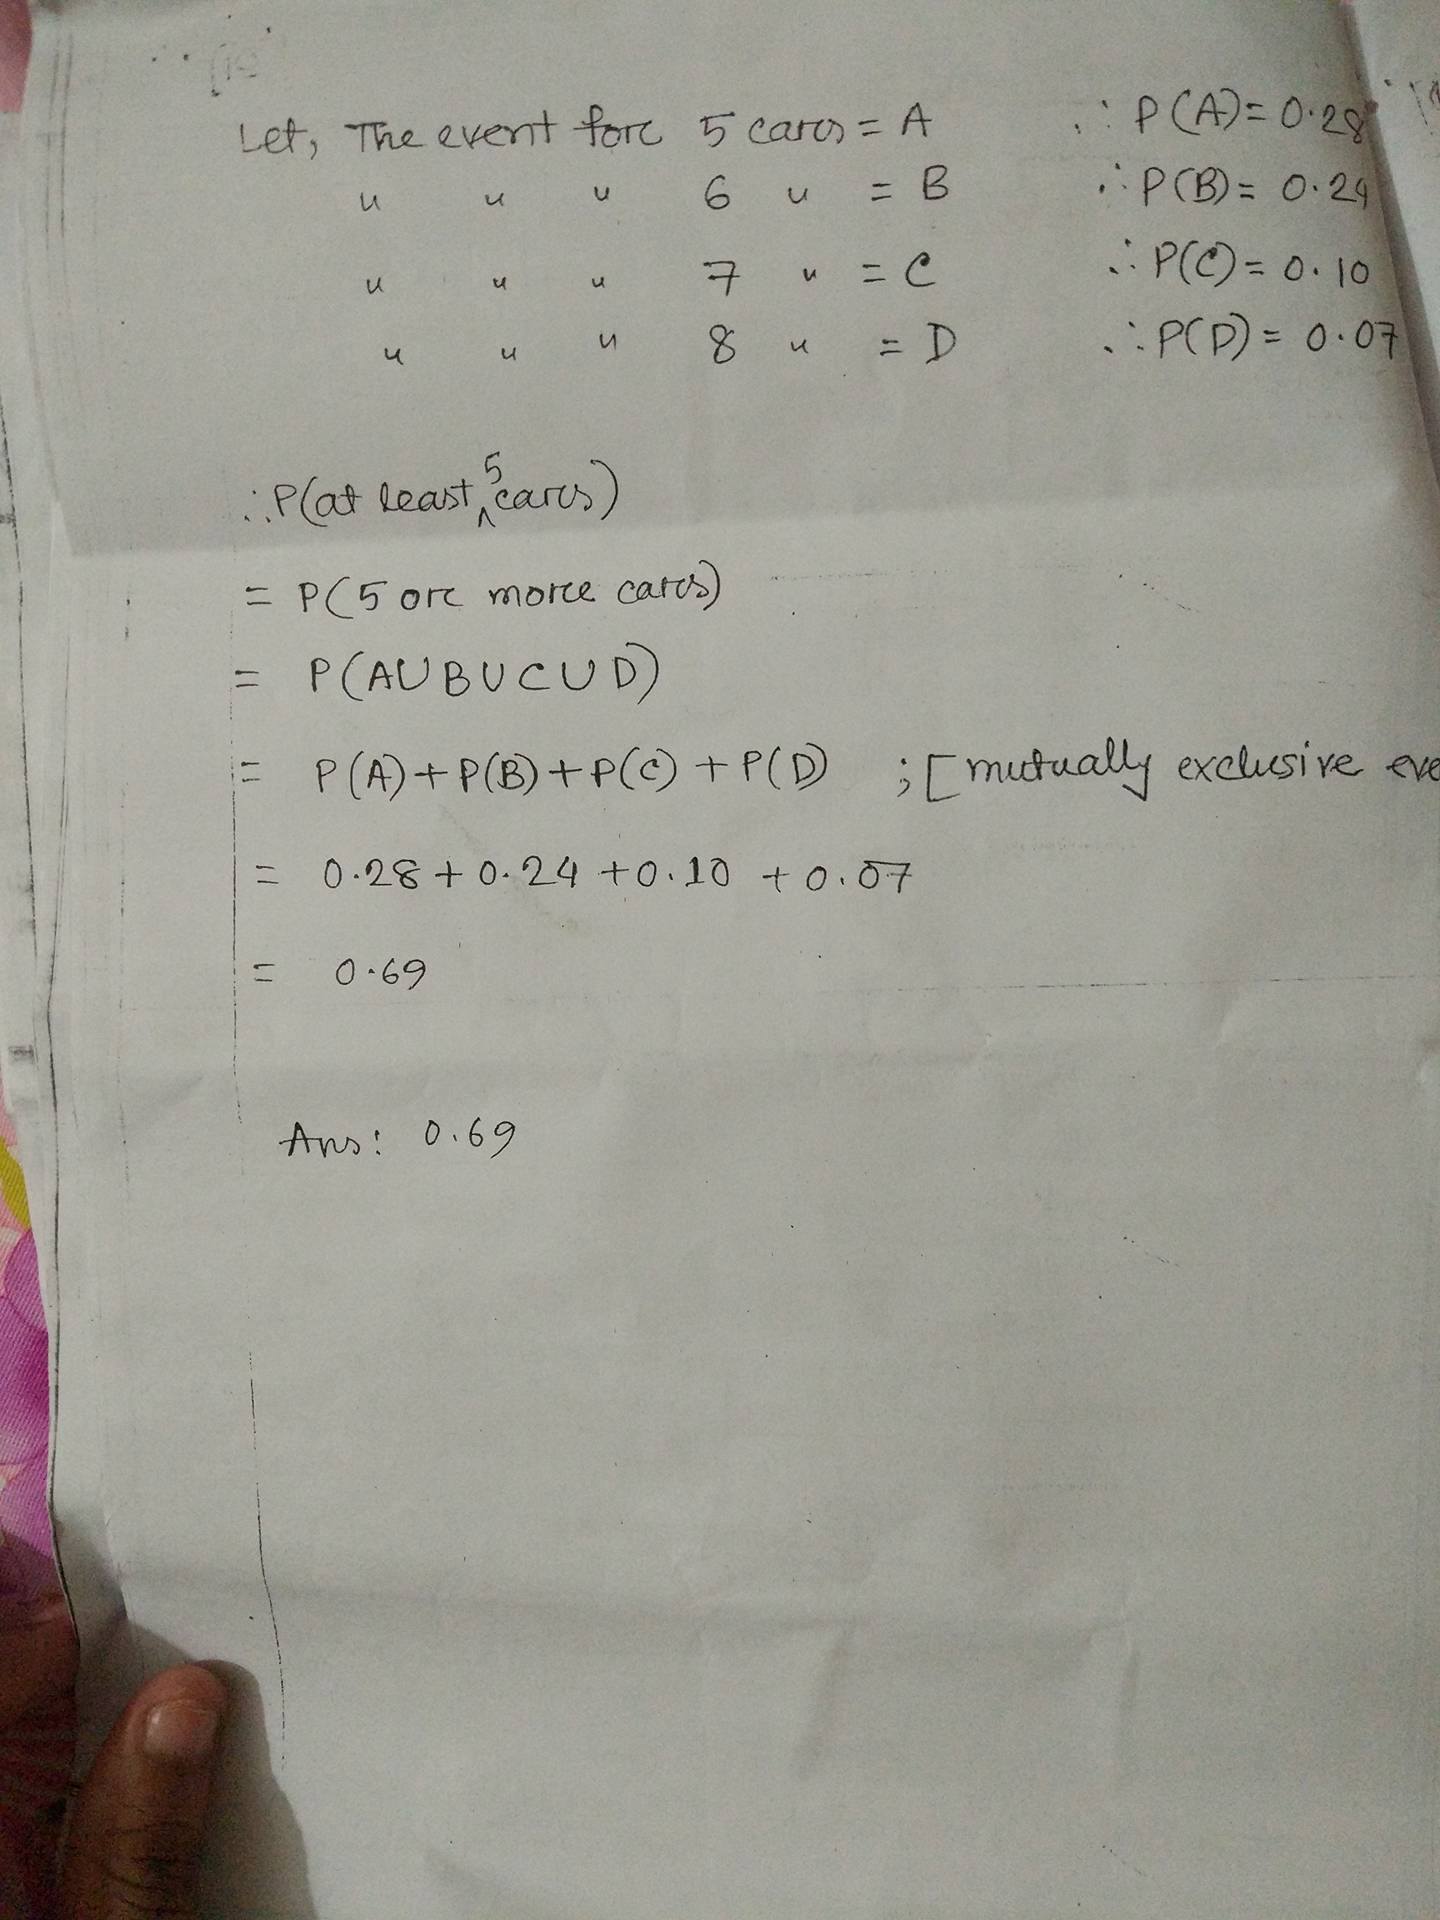 Let, The event forc 5 carcs = A ∴ P(A) = 0.28
" " " 6 " = B ∴ P(B) = 0.24
" " " 7 " = C ∴ P(C) = 0.10
" " " 8 " = D ∴ P(D) = 0.07
∴ P(at least 5 carcs)
= P(5 orc morce carcs)
= P(A∪B∪C∪D)
= P(A) + P(B) + P(C) + P(D) ; [mutually exclusive eve
= 0.28 + 0.24 + 0.10 + 0.07
= 0.69
Ans: 0.69